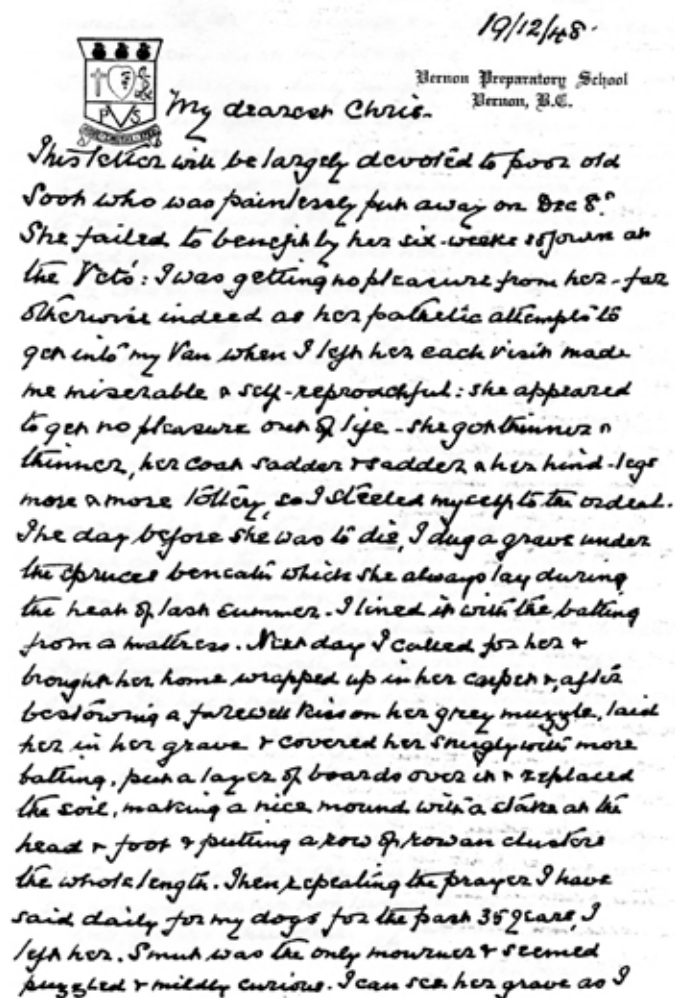 19/12/48.
Vernon Preparatory School
Vernon, B.C.
P V S
My dearest Chris.
This letter will be largely devoted to poor old
Sooh who was painlessly put away on Dec 8th
She failed to benefit by her six-weeks sojourn at
the Vets: I was getting no pleasure from her - far
otherwise indeed as her pathetic attempts to
get into my Van when I left her each visit made
me miserable & self-reproachful: she appeared
to get no pleasure out of life - she got thinner &
thinner, her coat sadder & sadder & her hind-legs
more & more tottery, so I steeled myself to the ordeal.
The day before she was to die, I dug a grave under
the spruces beneath which she always lay during
the heat of last summer. I lined it with the batting
from a mattress. Next day I called for her &
brought her home wrapped up in her carpet &, after
bestowing a farewell kiss on her grey muzzle, laid
her in her grave & covered her snugly with more
batting, put a layer of boards over it & replaced
the soil, making a nice mound with a stake at the
head & foot & putting a row of rowan clusters
the whole length. Then repeating the prayer I have
said daily for my dogs for the past 35 years, I
left her. Smut was the only mourner & seemed
puzzled & mildly curious. I can see her grave as I